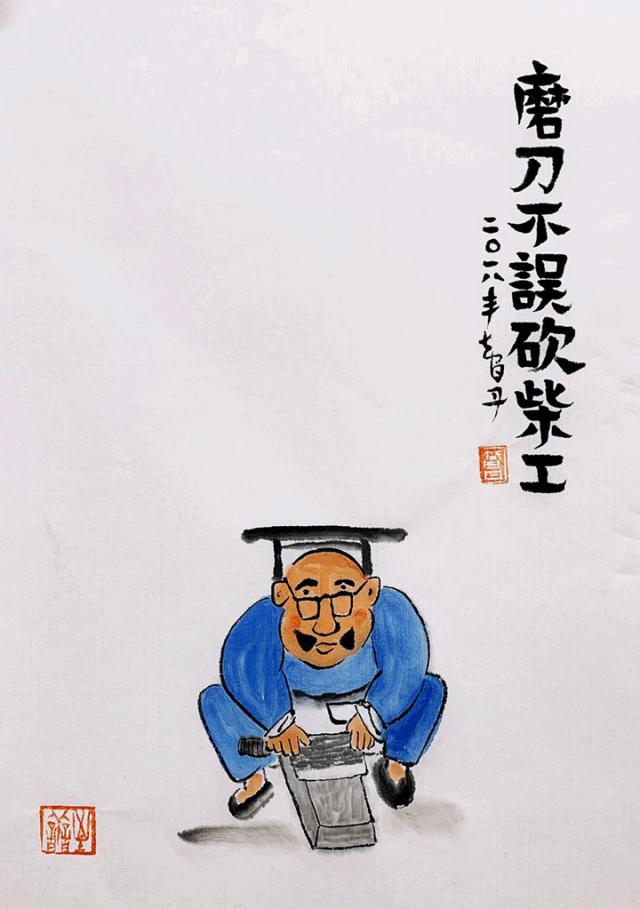 磨刀不誤砍柴工
二〇一八年